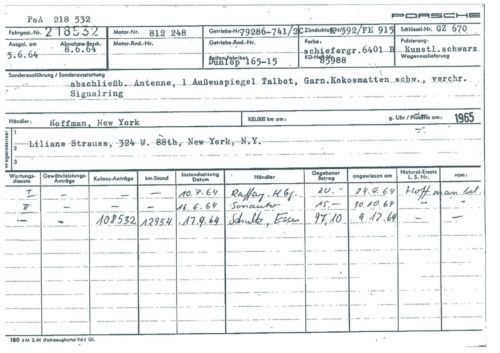 PoA 218 532
PORSCHE
Fahrgest.-Nr. 218532 Motor-Nr. 812 248 Getriebe-Nr. 79286-741/2C Zündschloß-Nr. K 392/FE 915 Schlüssel-Nr. GZ 670
Ausgel. am 5.6.64 Abnahme-Besch. 8.6.64 Motor-Änd.-Nr. Getriebe-Änd.-Nr. Farbe: schiefergr.6401 B Polsterung: Kunstl.schwarz
Reifen-Fabrikat Dunlop 165-15 KD-Heft-Nr. 85988 Wagenauslieferung
Sonderausführung / Sonderausstattung
abschließb. Antenne, 1 Außenspiegel Talbot, Garn.Kokosmatten schw., verchr.
Signalring
Händler: Hoffman, New York 100.000 km am: g. Uhr / Plakette am: 1965
1
2 Liliane Strauss, 324 W. 88th, New York, N.Y.
3
Wartungsdienste Gewährleistungs-Anträge Kulanz-Anträge km-Stand Instandsetzung Datum Händler Gegebener Betrag angewiesen am Natural-Ersatz L. S. Nr. vom:
I - - - 10.7.64 Raffay, Hbg. 20.- 24.9.64 Hoffman bel.
II - - - 16.6.64 Sonauto 15.- 30.10.64
- - 108532 12954 17.9.64 Schultz, Essen 97,10 9.12.64 - -
180